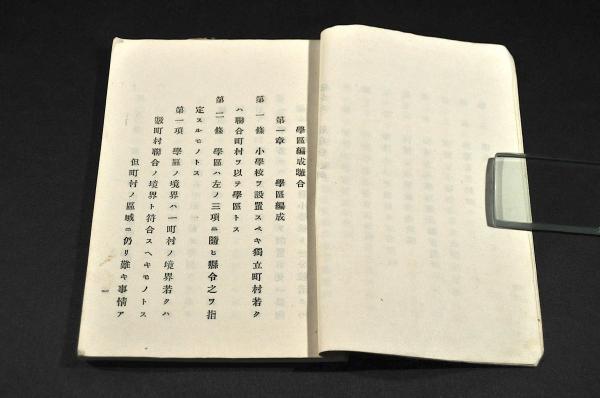 學區編成聯合
第一章　學區編成
第一條　小學校ヲ設置スベキ獨立町村若ク
ハ聯合町村ヲ以テ學區トス
第二條　學區ハ左ノ三項ニ隨ヒ縣令之ヲ指
定スルモノトス
第一項　學區ノ境界ハ一町村ノ境界若クハ
數町村聯合ノ境界ト符合スヘキモノトス
但町村ノ區域ニ仍リ難キ事情ア
一